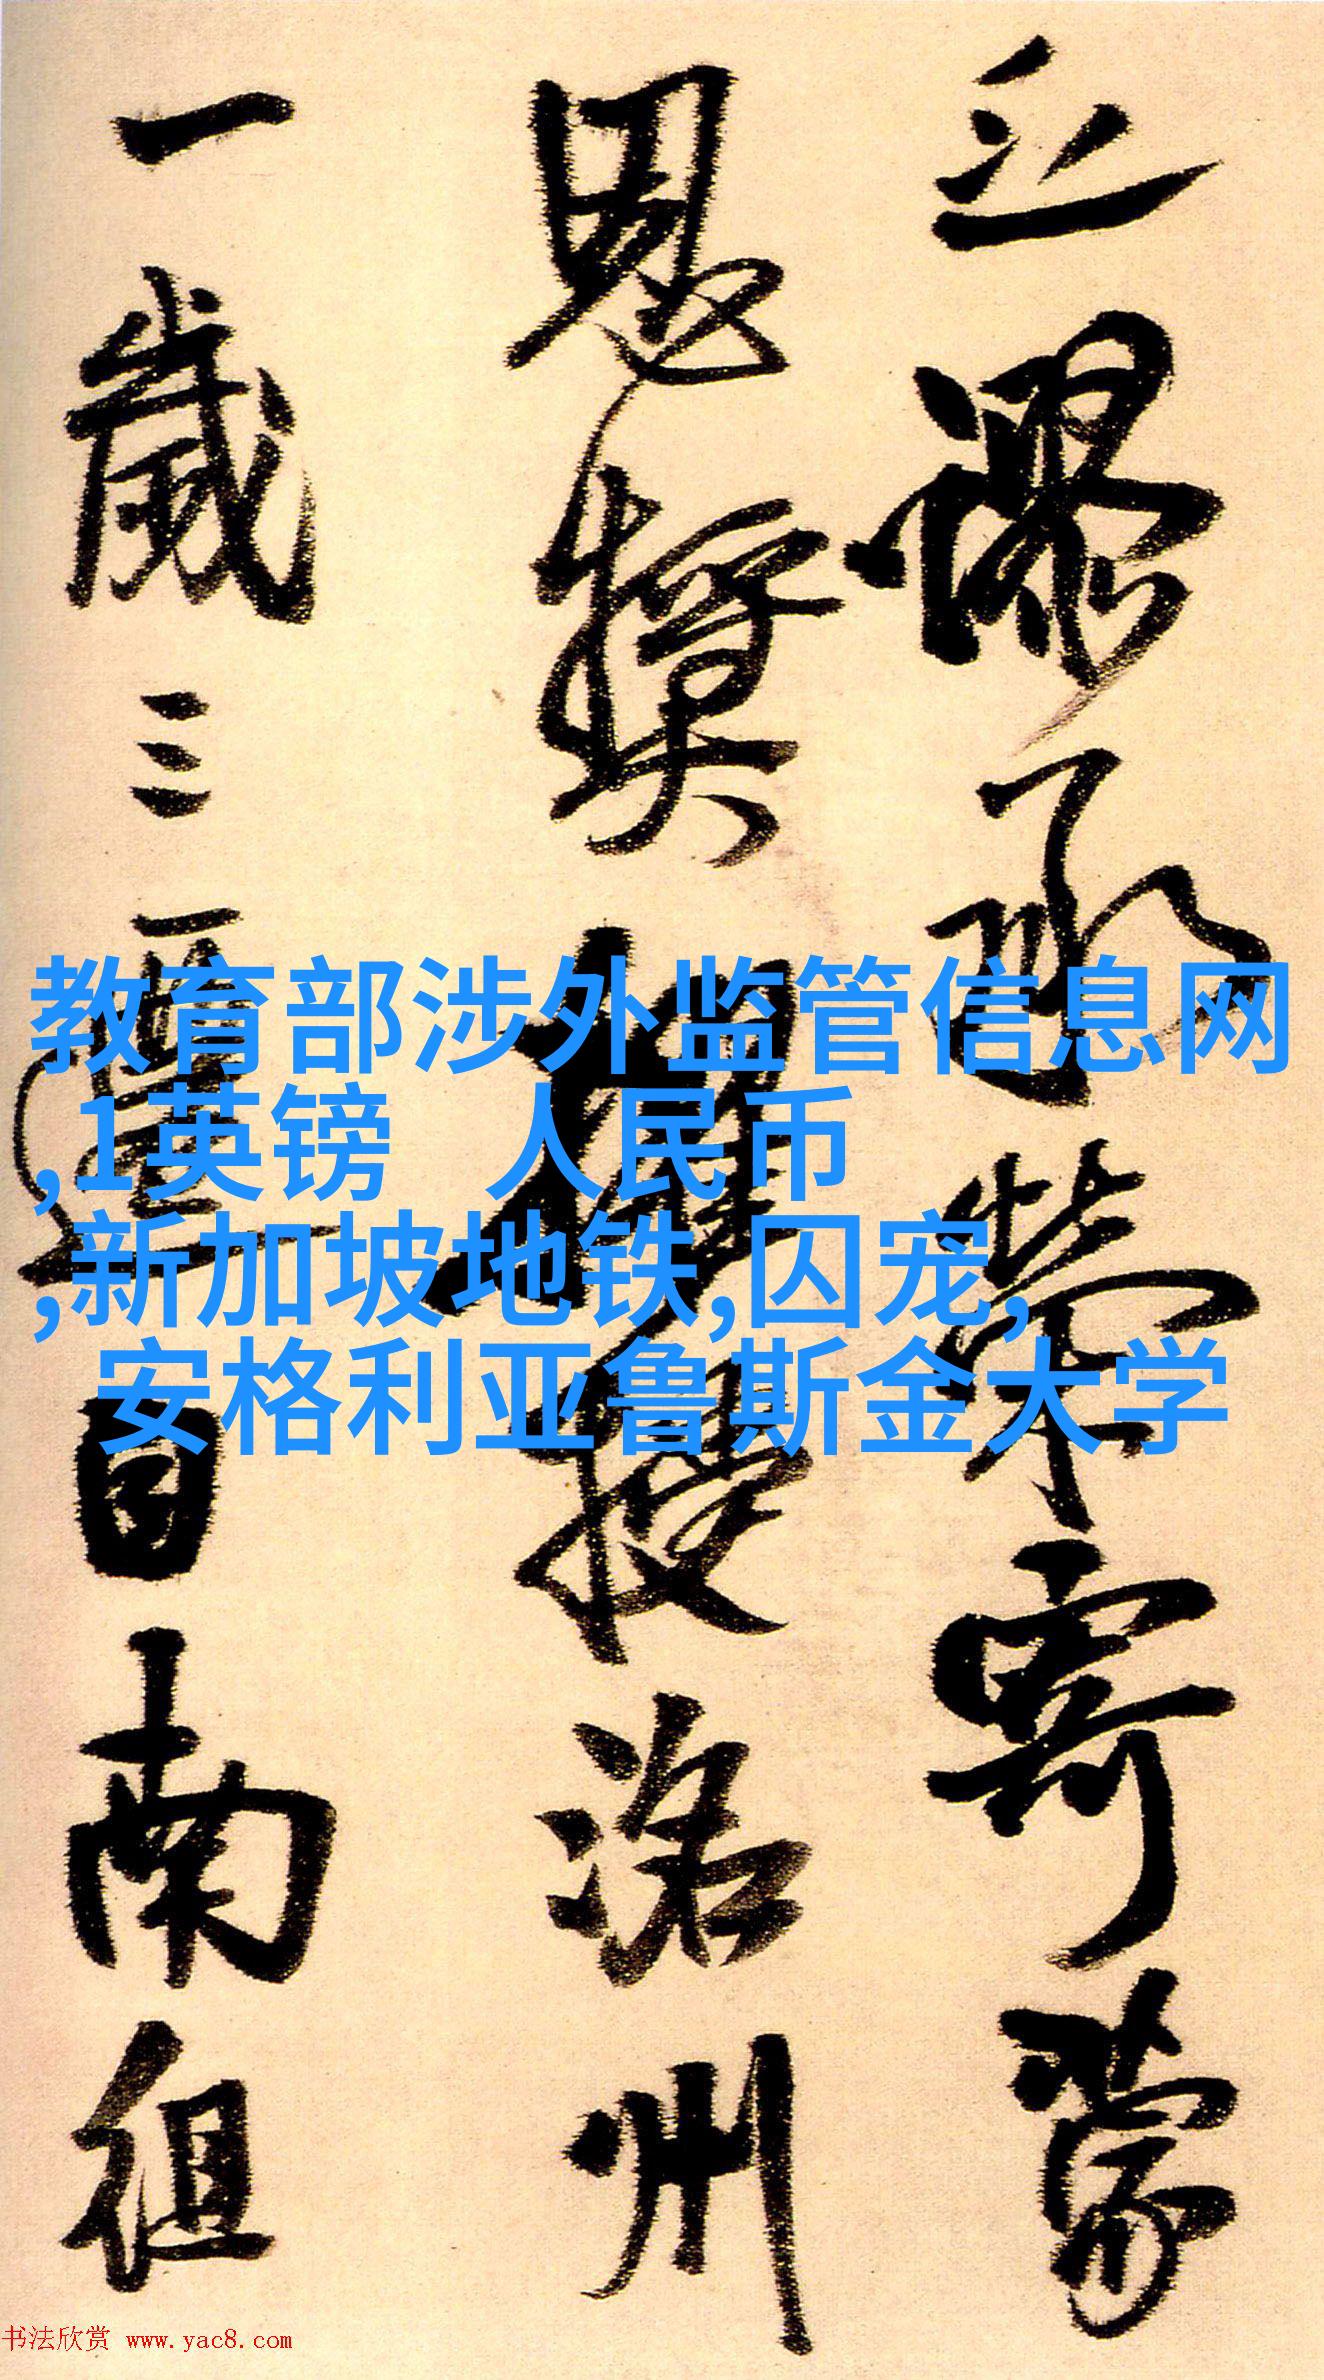 謬承榮寄蒙
恩獎擢授州
一歲三遷自南徂
教育部涉外监管信息网
,1英镑 人民币
,新加坡地铁,囚宠,
安格利亚鲁斯金大学
书法欣赏 www.yac8.com